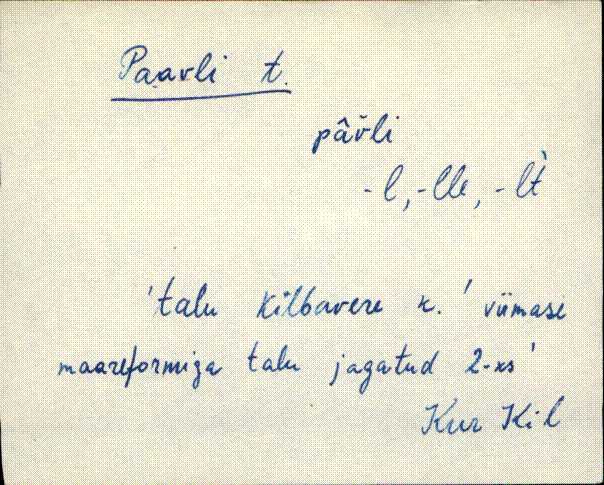 Paavli t.
pâv̆li
-l, -lle, -lt̀
'talu Kilbavere k.' viimase
maareformiga talu jagatud 2-ks'
Kur Kil